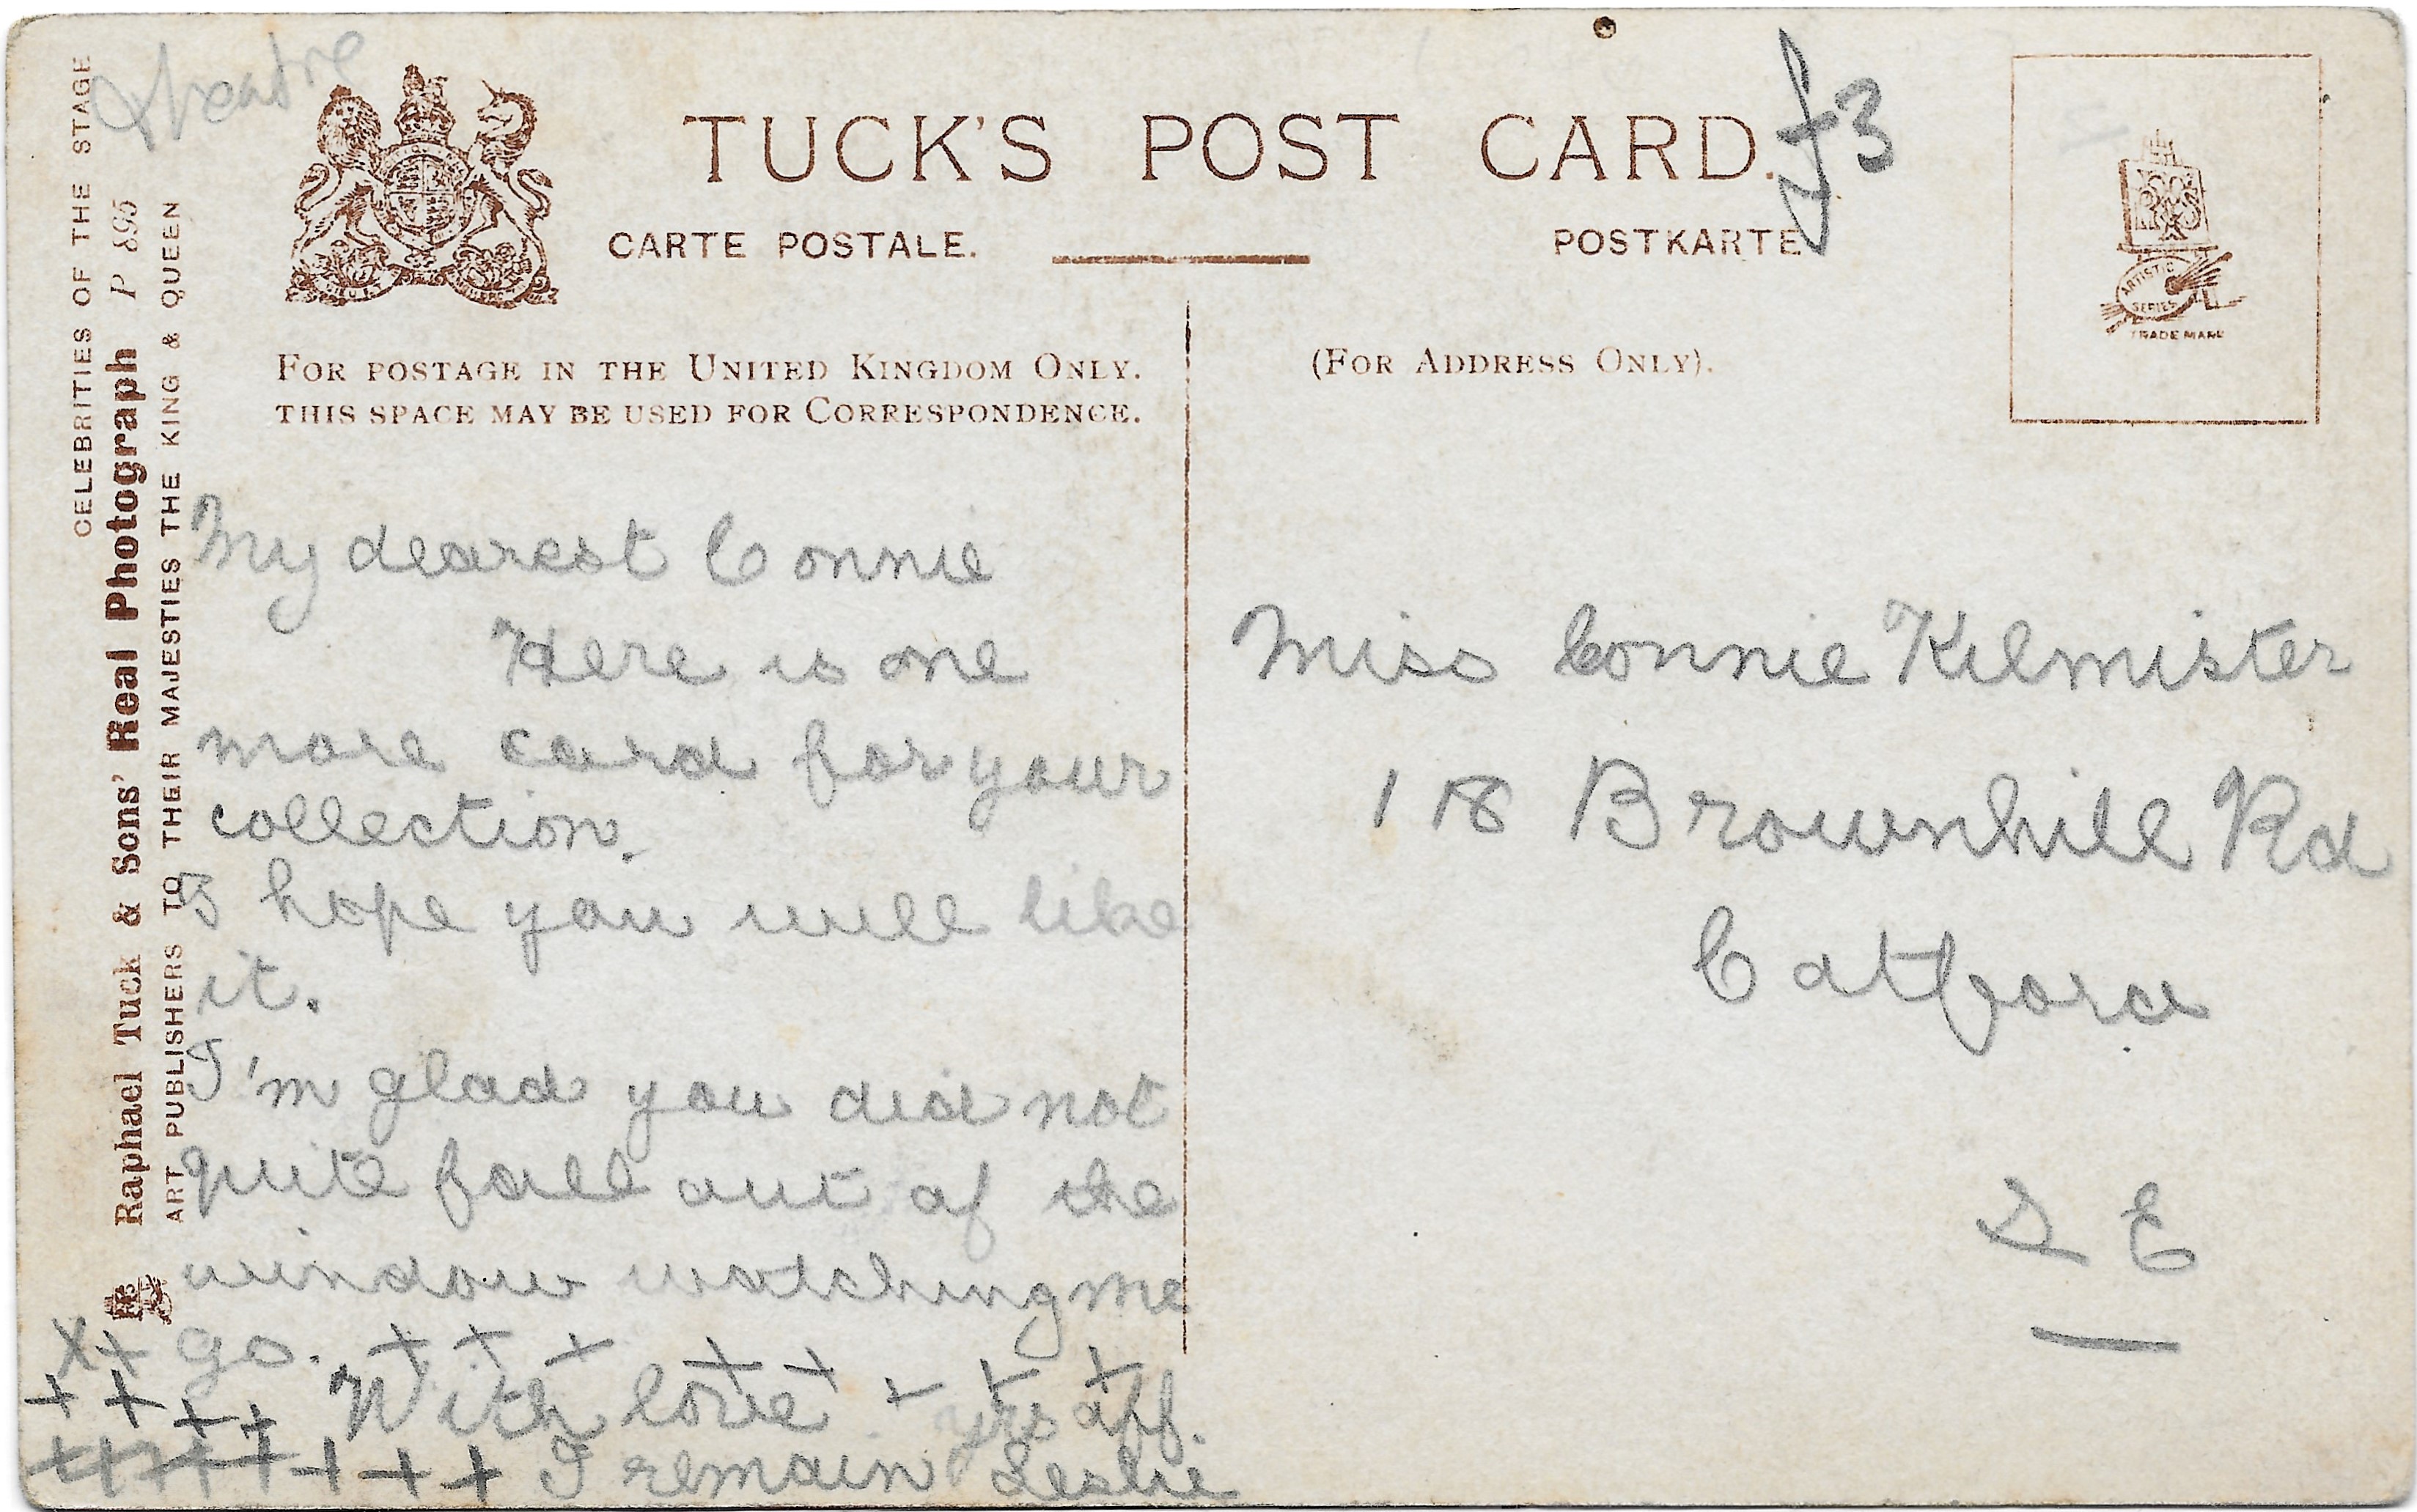 Theatre
£3
TUCK'S POST CARD.
CARTE POSTALE.
POSTKARTE
CELEBRITIES OF THE STAGE
Raphael Tuck & Sons' Real Photograph P 895
ART PUBLISHERS TO THEIR MAJESTIES THE KING & QUEEN
FOR POSTAGE IN THE UNITED KINGDOM ONLY.
THIS SPACE MAY BE USED FOR CORRESPONDENCE.
(FOR ADDRESS ONLY).
ARTISTIC
SERIES
TRADE MARK
My dearest Connie
Here is one
more card for your
collection.
I hope you will like
it.
I'm glad you did not
quite fall out of the
window watching me
go. + + +
x+
+ + + + With love + + - + + yrs aff.
+ + + + + + + + I remain Leslie
Miss Connie Kilmister
118 Brownhill Rd
Catford
S E